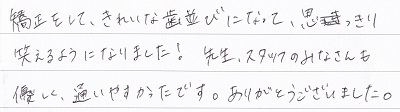 矯正をして、きれいな歯並びになって、思いっきり
笑えるようになりました! 先生、スタッフのみなさんも
優しく、通いやすかったです。ありがとうございました。